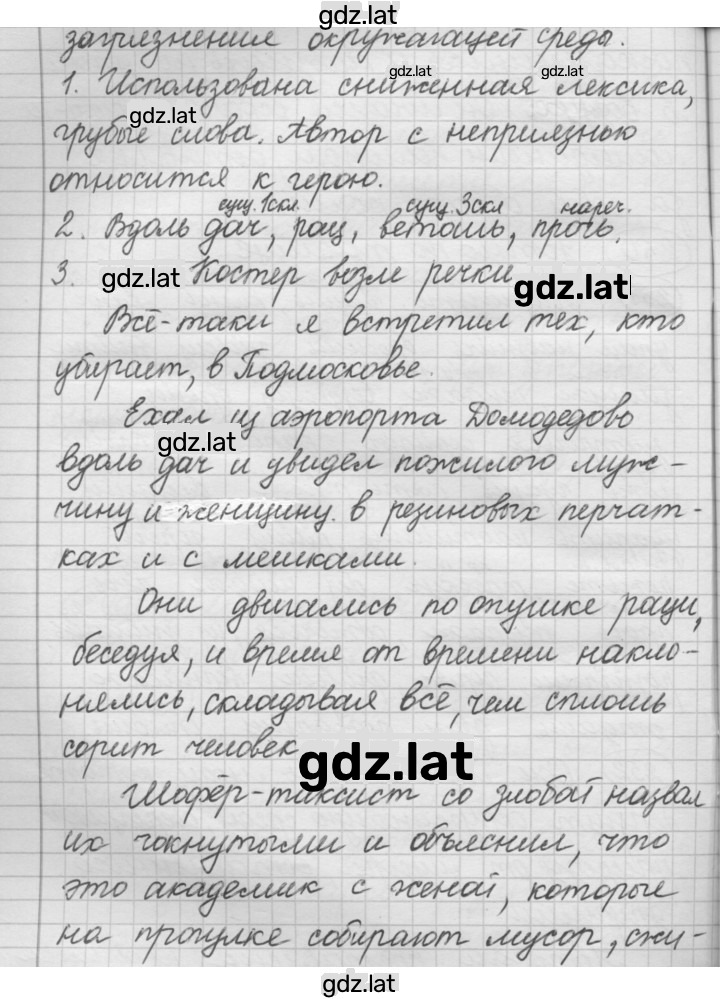 gdz.lat
загрязнения окружающей среды.
gdz.lat gdz.lat
1. Использована сниженная лексика,
gdz.lat
грубые слова. Автор с неприязнью
относится к герою.
сущ. 1скл. сущ. 3скл нареч.
2. Вдоль дач, рощ, ветошь, прочь.
3. gdz.lat Костер возле речки gdz.lat
Всё-таки я встретил тех, кто
убирает, в Подмосковье.
Ехал из аэропорта Домодедово
gdz.lat
вдоль дач и увидел пожилого муж-
чину и женщину в резиновых перчат-
ках и с мешками.
Они двигались по опушке рощи,
беседуя, и время от времени накло-
нялись, складывая всё, чем сплошь
сорит человек gdz.lat
Шофёр-таксист со злобой назвал
их чокнутыми и объяснил, что
это академик с женой, которые
на прогулке собирают мусор, сжи-
gdz.lat